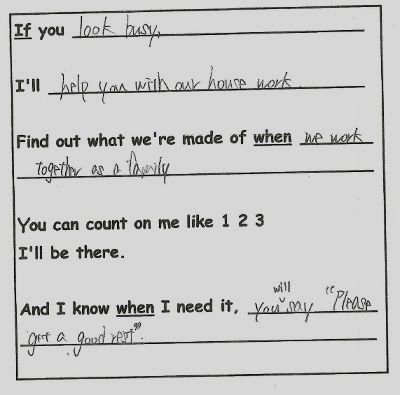 If you look busy,
I'll help you with our house work.
Find out what we're made of when we work
together as a family
You can count on me like 1 2 3
I'll be there.
And I know when I need it, you will say "Please
get a good rest".